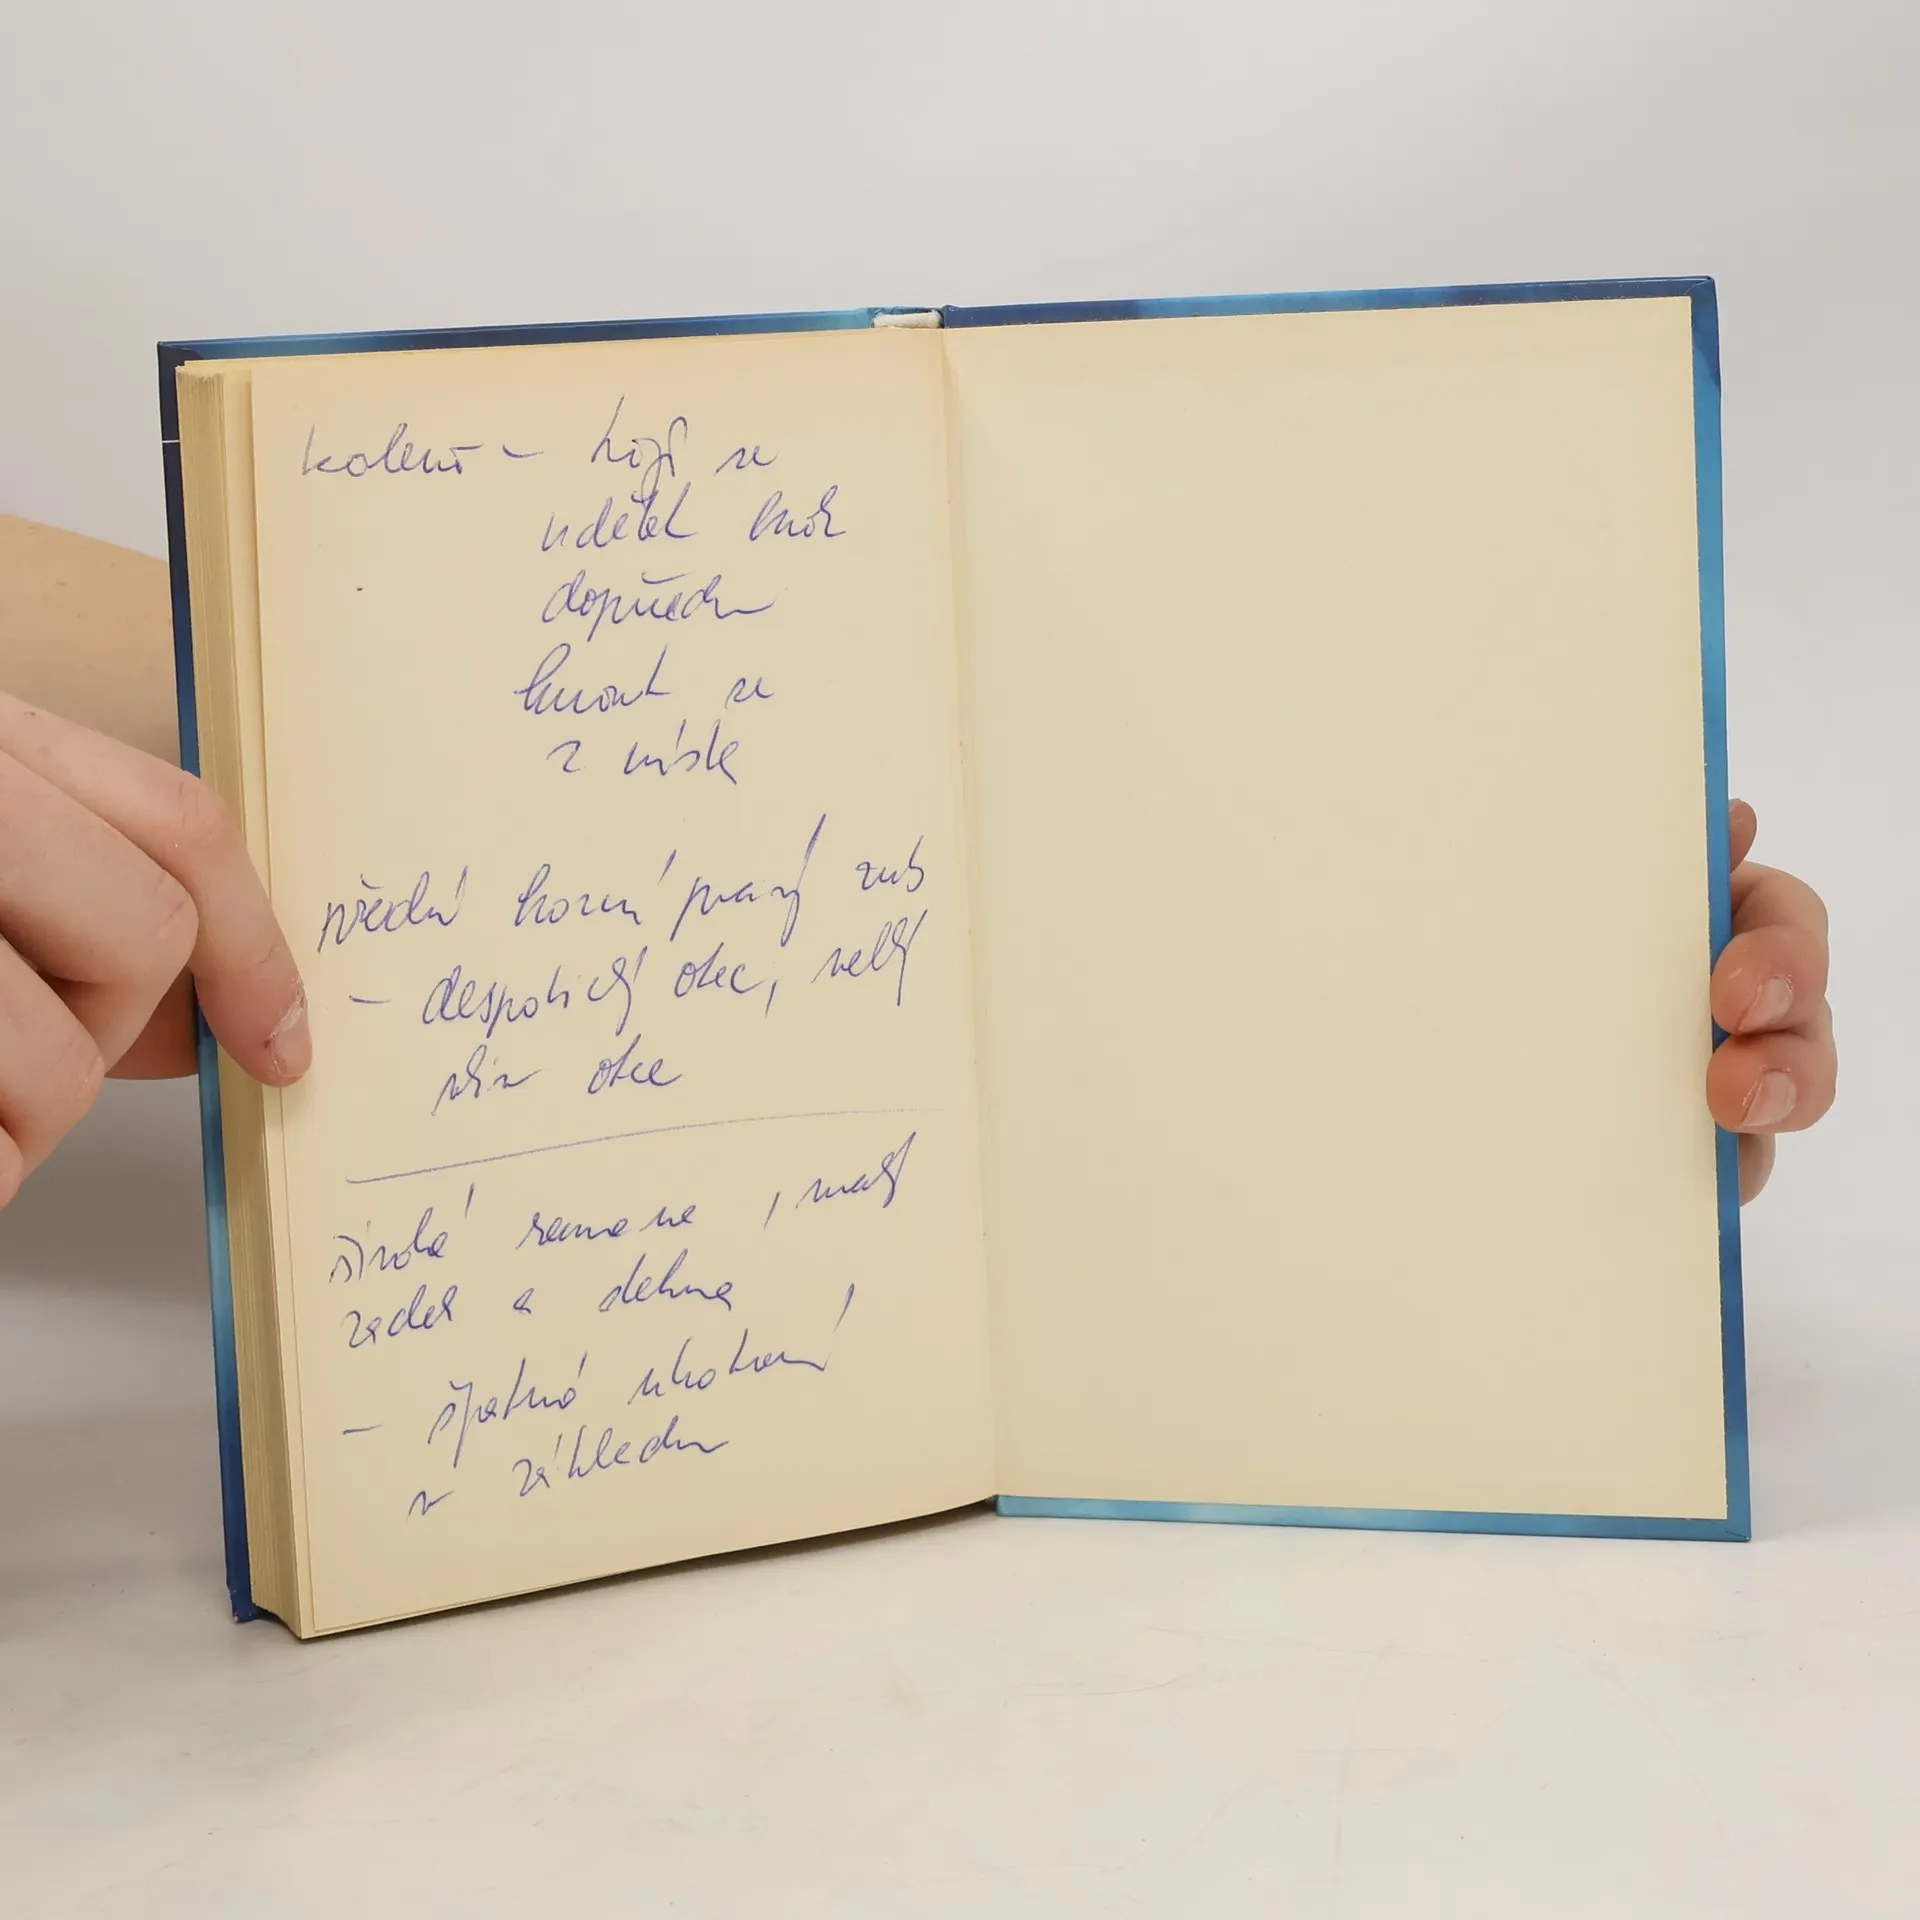 koleno – bojí se
udělat krok
dopředu
hnout se
z místa
přední horní pravý zub
– despotický otec, velký
vliv otce
široká ramena, malý
zadek a stehna
– špatné ukotvení
v základu